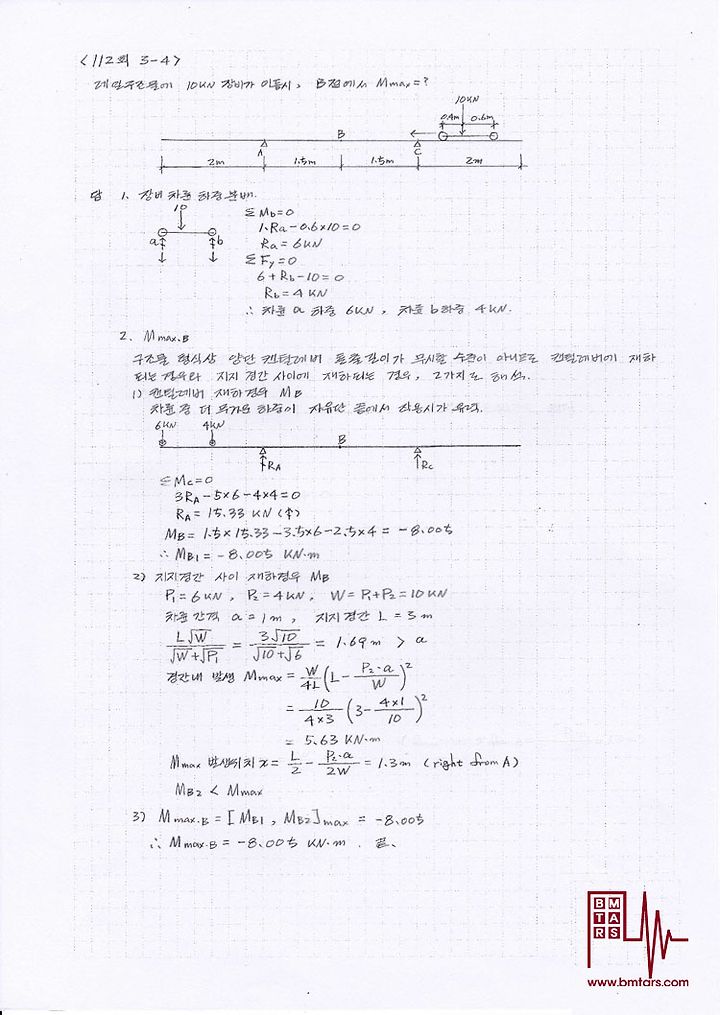 <112회 3-4>
레일구조물에 10KN 장비가 이동시, B점에서 Mmax=?
10KN
0.4m 0.6m
B
A C
2m 1.5m 1.5m 2m
답 1. 장비 차륜 하중 분배.
10
a b
ΣMb=0
1·Ra-0.6×10=0
Ra=6KN
ΣFy=0
6+Rb-10=0
Rb=4KN
∴ 차륜 a 하중 6KN, 차륜 b 하중 4KN.
2. Mmax.B
구조물 형식상 양단 캔틸레버 돌출길이가 무시할 수준이 아니므로 캔틸레버에 재하
되는 경우와 지지 경간 사이에 재하되는 경우, 2가지로 해석.
1) 캔틸레버 재하경우 MB
차륜 중 더 무거운 하중이 자유단 끝에서 작용시가 유리.
6KN 4KN B
RA RC
ΣMc=0
3RA-5×6-4×4=0
RA=15.33 KN(↑)
MB=1.5×15.33-3.5×6-2.5×4=-8.005
∴ MB1=-8.005 KN·m
2) 지지경간 사이 재하경우 MB
P1=6KN, P2=4KN, W=P1+P2=10KN
차륜 간격 a=1m, 지지경간 L=3m
L√W/(√W+√P1) = 3√10/(√10+√6) = 1.69m > a
경간내 발생 Mmax = W/4L (L - P2·a/W)²
= 10/(4×3) (3 - 4×1/10)²
= 5.63 KN·m
Mmax 발생위치 x = L/2 - P2·a/2W = 1.3m (right from A)
MB2 < Mmax
3) Mmax.B = [MB1, MB2]max = -8.005
∴ Mmax.B = -8.005 KN·m. 끝.
BM
TA
RS
www.bmtars.com